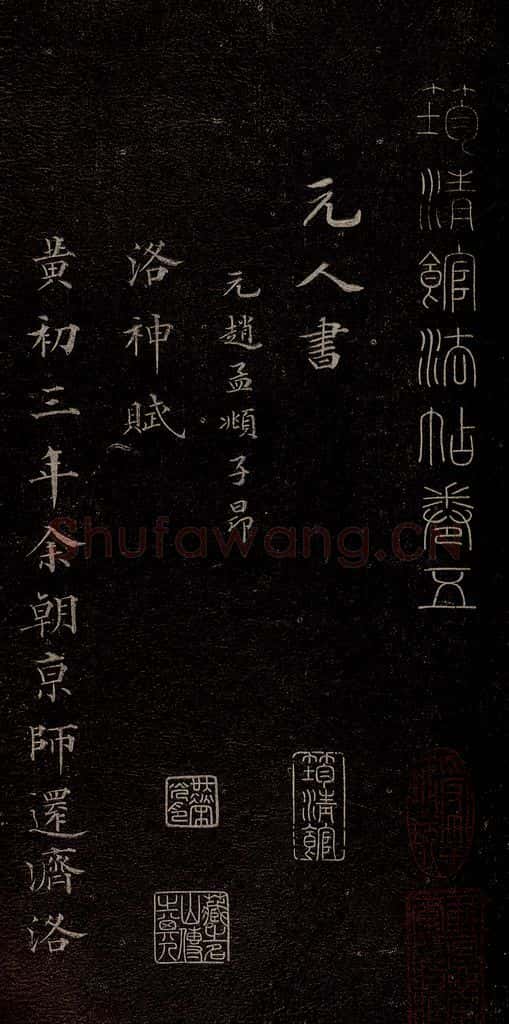 筠清館法帖卷五
元人書
元趙孟頫子昂
洛神賦
黃初三年余朝京師還濟洛
筠清館
Shufawang.CN